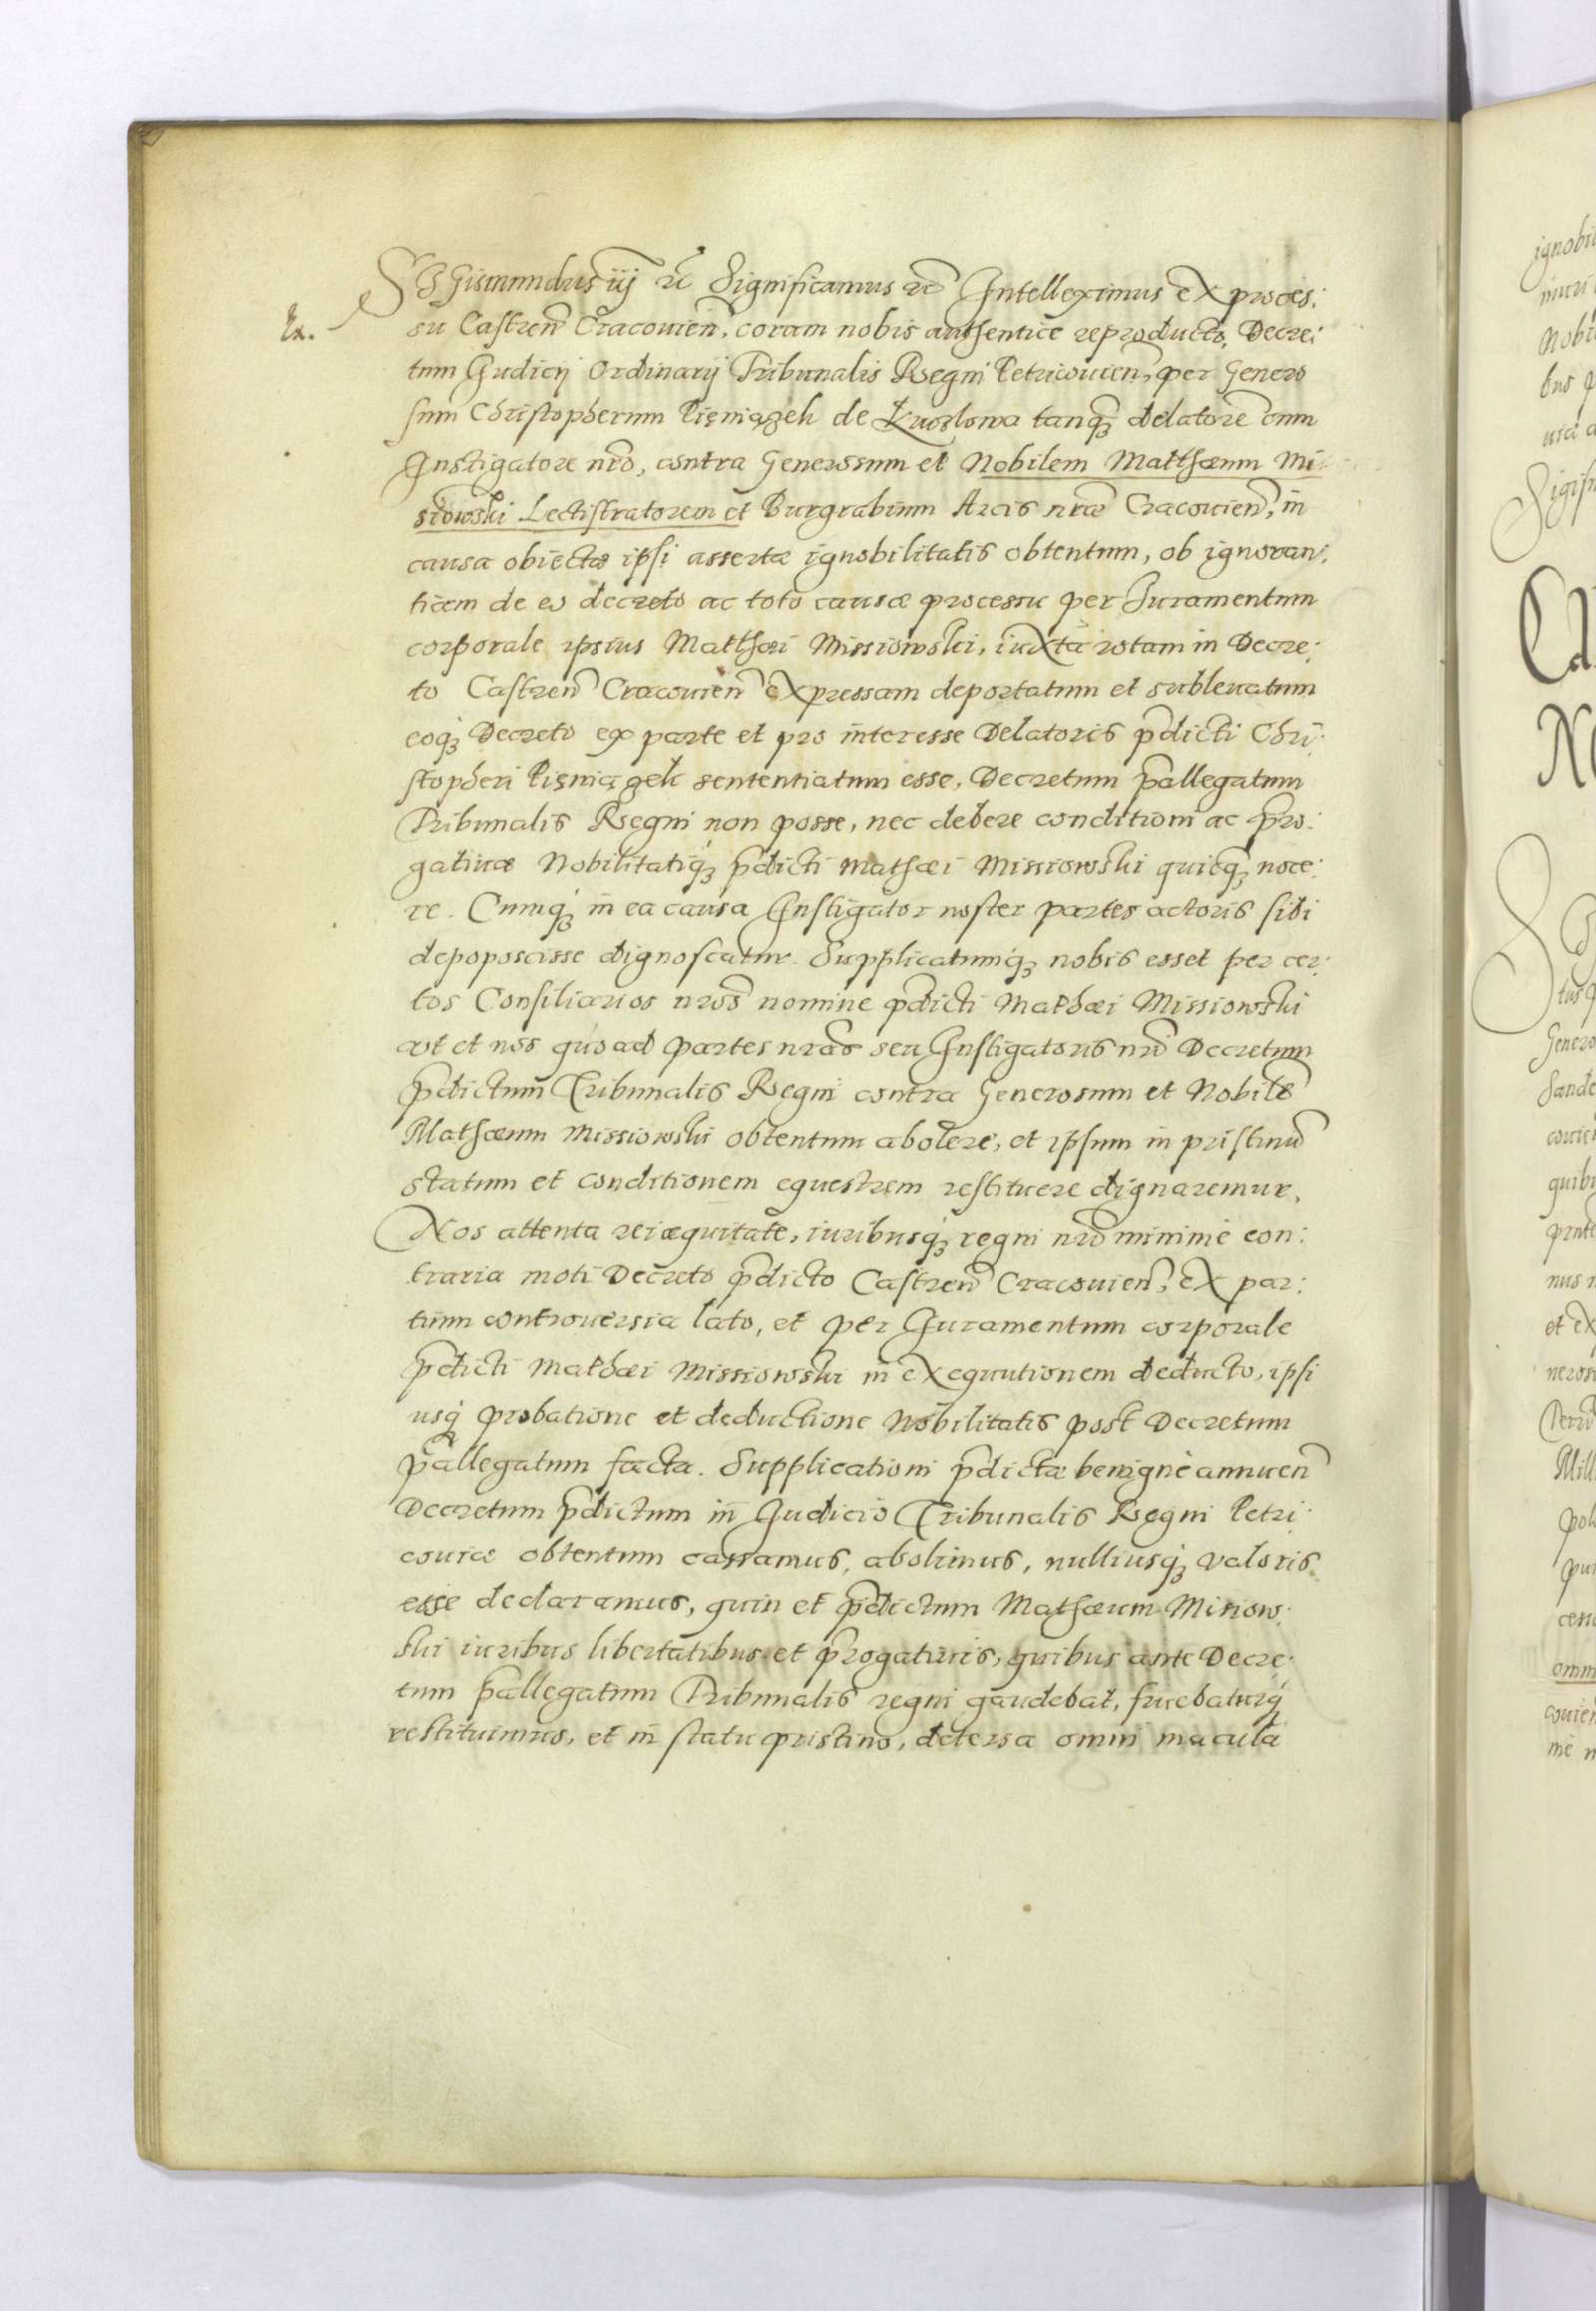 SIgismundus iij etc Significamus etc Intelleximus ex proces:
Ex.
su Castren̄ Cracouien̄. coram nobis authentice reproducto, Decre:
tum Iudicij Ordinarij Tribunalis Regni Petricouien̄, per Genero
sum Christopherum Pięniążek de Kruslowa tanq̨ delatorē cum
Instigatore nr̄o, contra Generosum et Nobilem Matthæum Mi
siowski Lectistratorem et Burgrabium Arcis nr̄æ Cracouien̄, in
causa obiectæ ipsi assertæ ignobilitatis obtentum, ob ignoran:
tiam de eo decreto ac toto causæ processu per Iuramentum
corporale ipsius Matthæi Missiowski, iuxta rotam in Decre:
to Castren̄ Cracouien̄ expressam deportatum et subleuatum
eoq̨ Decreto ex parte et pro interesse Delatoris p̄dicti Chri:
stopheri Pięniążek sententiatum esse, Decretum p̄allegatum
Tribunalis Regni non posse, nec debere conditioni ac p̄ro:
gatiuæ Nobilitatiq̨ p̄dicti Mathæi Missiowski quicq̨ noce:
re. Cumq̨ in ea causa Instigator noster partes actoris sibi
depoposcisse dignoscatur. Supplicatumq̨ nobis esset per cer:
tos Consiliarios nr̄os nomine p̄dicti Mathæi Missiowski
vt et nos quoad partes nr̄as seu Instigatoris nr̄i Decretum
p̄dictum Tribunalis Regni contra Generosum et Nobilē
Mathæum Missiowski obtentum abolere, et ipsum in pristinū
statum et conditionem equestrem restituere dignaremur,
Nos attenta rei æquitate, iuribusq̨ regni nr̄i minime con:
traria moti Decreto p̄dicto Castren̄ Cracouien̄, ex par:
tium controuersia lato, et per Iuramentum corporale
p̄dicti Mathæi Missiowski in exequutionem deducto, ipsi
usq̨ probatione et deductione Nobilitatis post Decretum
p̄allegatum facta. Supplicationi p̄dictæ benignè annuen̄
Decretum p̄dictum in Iudicio Tribunalis Regni Petri:
couiæ obtentum cassamus, abolimus, nulliusq̨ valoris
esse declaramus, quin et p̄dictum Mathæum Misiow:
ski iuribus libertatibus et p̄rogatiuis, quibus ante Decre:
tum p̄allegatum Tribunalis regni gaudebat, fruebaturq̨
restituimus, et in statu pristino, detersa omni macula